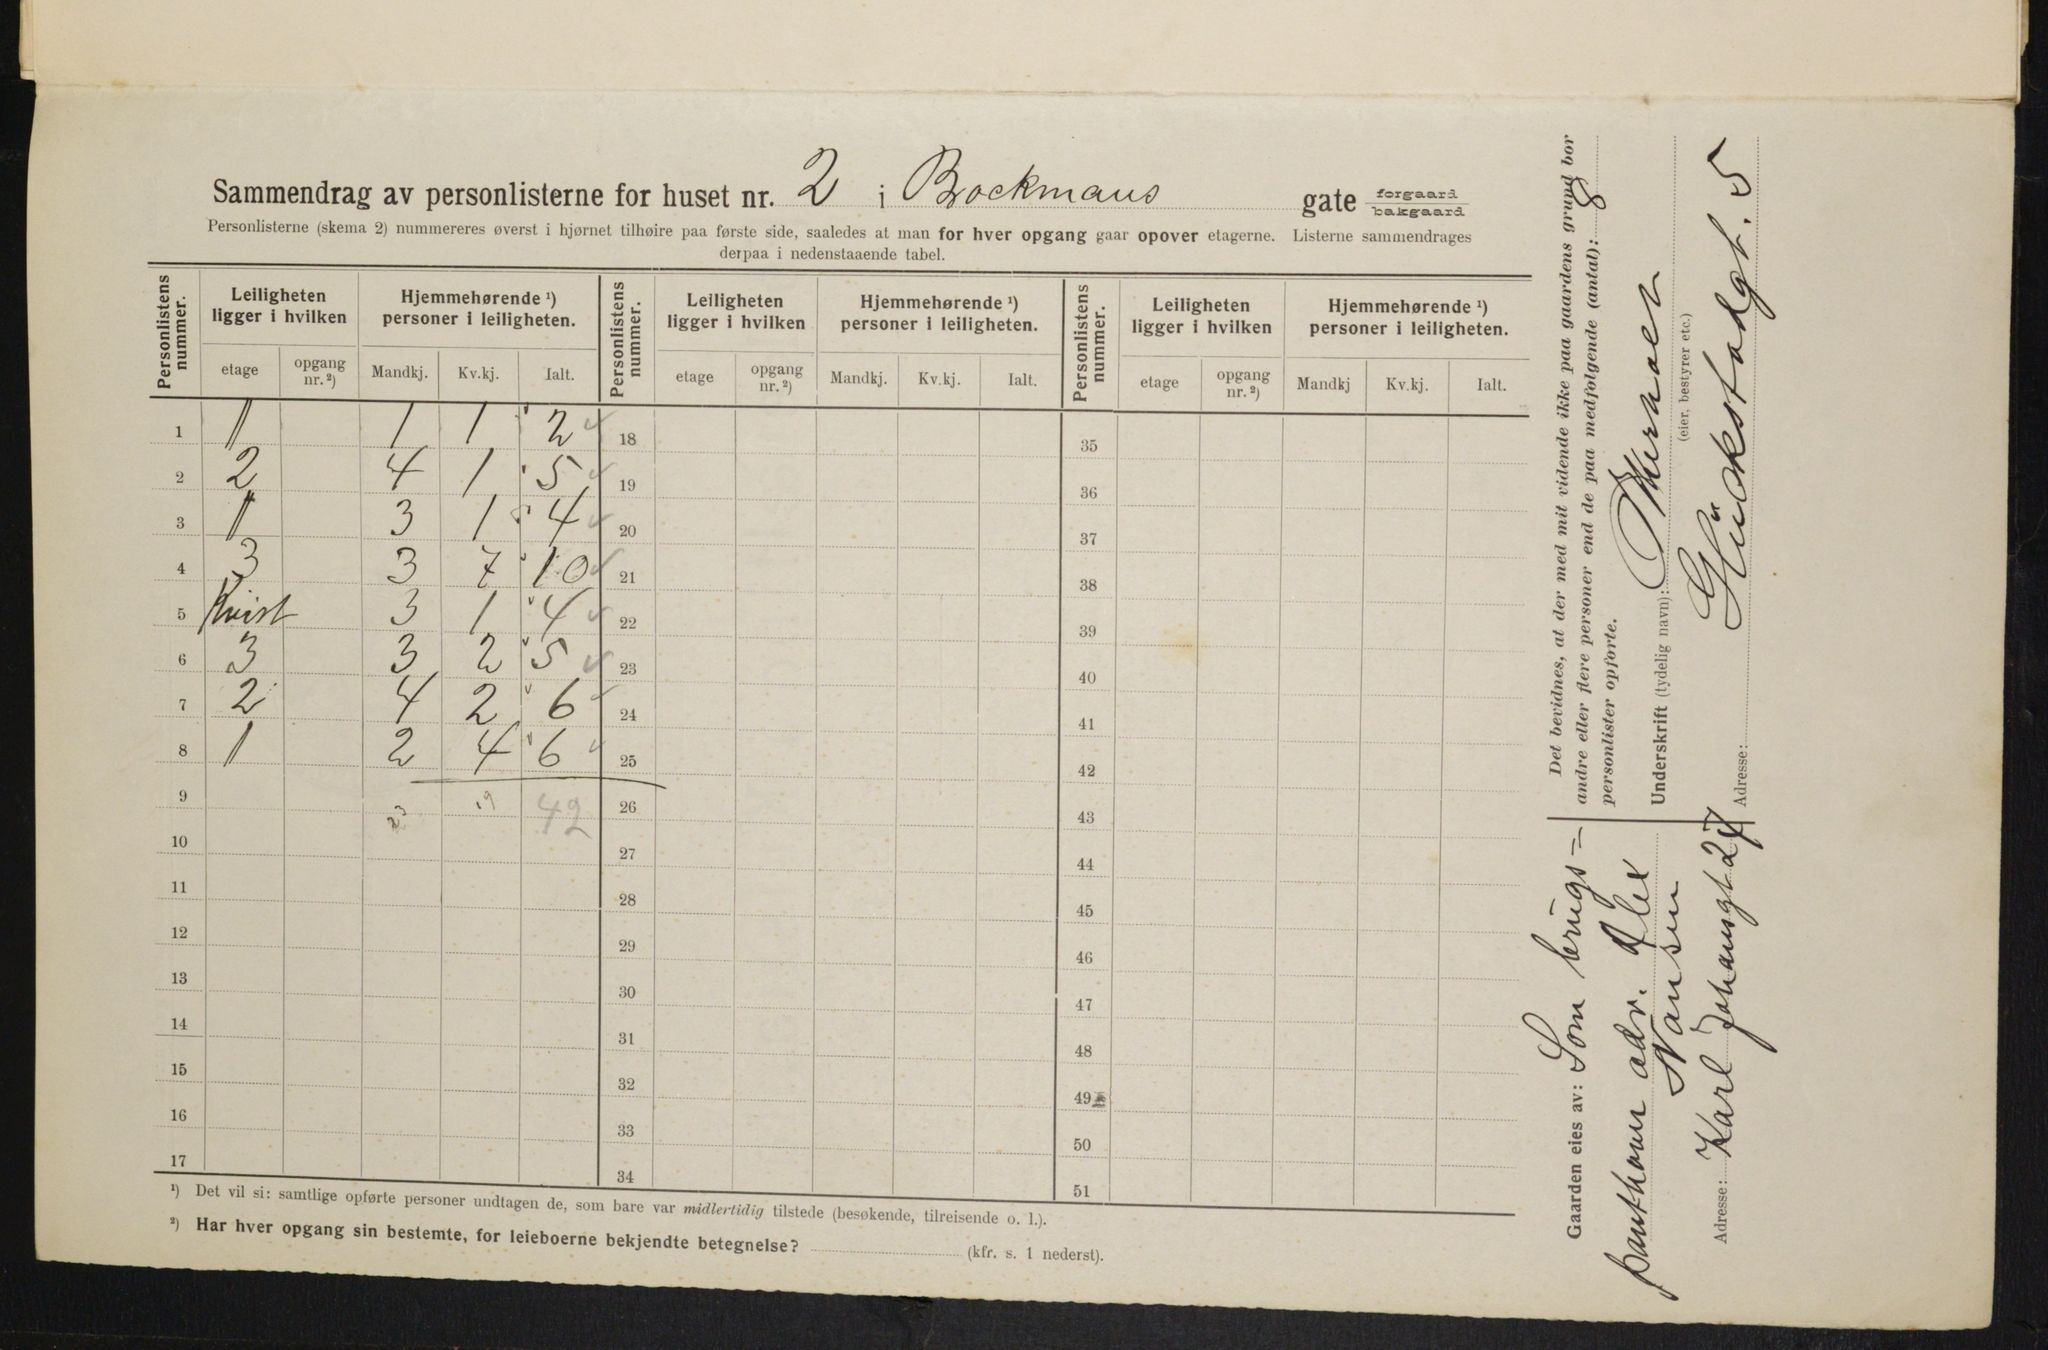 Sammendrag av personlisterne for huset nr. 2 i Bockmans gate forgaard bakgaard
Personlisterne (skema 2) nummereres øverst i hjørnet tilhøire paa første side, saaledes at man for hver opgang gaar opover etagerne. Listerne sammendrages
derpaa i nedenstaaende tabel.
Personlistens nummer. Leiligheten ligger i hvilken Hjemmehørende ¹) personer i leiligheten. Personlistens nummer. Leiligheten ligger i hvilken Hjemmehørende ¹) personer i leiligheten. Personlistens nummer. Leiligheten ligger i hvilken Hjemmehørende ¹) personer i leiligheten.
etage opgang nr. ²) Mandkj. Kv.kj. Ialt. etage opgang nr. ²) Mandkj. Kv.kj. Ialt. etage opgang nr. ²) Mandkj Kv.kj. Ialt.
1 1 1 1 2 18 35
2 2 4 1 5 19 36
3 1 3 1 4 20 37
4 3 3 7 10 21 38
5 Kvist 3 1 4 22 39
6 3 3 2 5 23 40
7 2 4 2 6 24 41
8 1 2 4 6 25 42
9 23 19 42 26 43
10 27 44
11 28 45
12 29 46
13 30 47
14 31 48
15 32 49
16 33 50
17 34 51
¹) Det vil si: samtlige opførte personer undtagen de, som bare var midlertidig tilstede (besøkende, tilreisende o. l.).
²) Har hver opgang sin bestemte, for leieboerne bekjendte betegnelse? (kfr. s. 1 nederst).
Det bevidnes, at der med mit vidende ikke paa gaardens grund bor
andre eller flere personer end de paa medfølgende (antal): 8
personlister opførte.
Underskrift (tydelig navn):
(eier, bestyrer etc.)
Adresse: Glückstadgt. 5
Gaarden eies av: Som brugs=
panthaver adv. Alex
Nansen
Adresse: Karl Johansgt 27